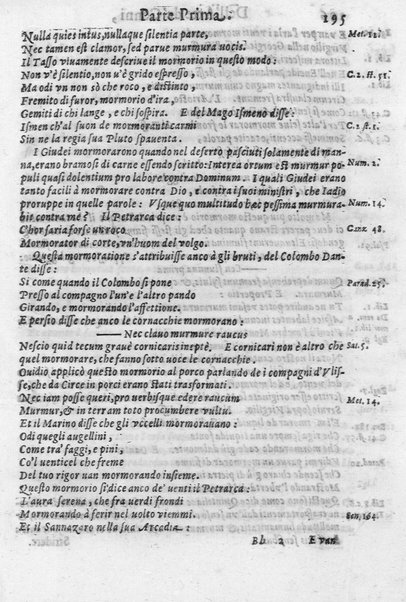 Parte Prima. 195
Nulla quies intus, nullaque silentia parte, Met. 12.
Nec tamen est clamor, sed parue murmura uocis.
Il Tasso viuamente descriue il mormorio in questo modo:
Non v'è silentio, non u'è grido espresso, C. 2. st. 51.
Ma odi vn non sò che roco, e distinto,
Fremito di furor, mormorio d'ira,
Gemiti di chi lange, e chi sospira. E del Mago Ismeno disse:
Ismen ch'al suon de mormoranti carmi C. 2. st. 1.
Sin ne la regia sua Pluto spauenta.
I Giudei mormorarono quando nel deserto pasciuti solamente di man-
na, erano bramosi di carne essendo scritto: Interea ortum est murmur po- Num. 2.
puli quasi dolentium pro labore contra Dominum. I quali Giudei erano
tanto facili à mormorare contra Dio, e contra i suoi ministri, che Iadio
proruppe in quelle parole: Vsque quo multitudo hæc pessima murmura- Num. 14.
bit contra me? Il Petrarca dice:
Ch'or saria forse un roco Canz. 48.
Mormorator di corte, vn'huom del volgo.
Questa mormoratione s'attribuisse anco à gli bruti, del Colombo Dan-
te disse:
Si come quando il Colombo si pone Parad. 25.
Presso al compagno l'un'e l'altro pando
Girando, e mormorando l'affettione.
E persio disse che anco le cornacchie mormorano:
Nec clauo murmure raucus
Nescio quid tecum graue cornicaris ineptè. E cornicari non è altro che Sat. 5.
quel mormorare, che fanno sotto uoce le cornacchie.
Ouidio applicò questo mormorio al porco parlando de i compagni d'Vlis-
se, che da Circe in porci erano stati trasformati.
Nec iam posse queri, pro uerbisque edere raucum Met. 14.
Murmur, & in terram toto procumbere vultu.
Et il Marino disse che gli vccelli mormorauano:
Odi quegli augellini,
Come tra' faggi, e pini,
Co'l uenticel che freme
Del tuo rigor uan mormorando insieme.
Questo mormorio si dice anco de' uenti il Petrarca:
L'aura serena, che fra uerdi frondi
Mormorando à ferir nel uolto viemmi. Son. 164.
Et il Sannazaro nella sua Arcadia:
Bb 2 E van